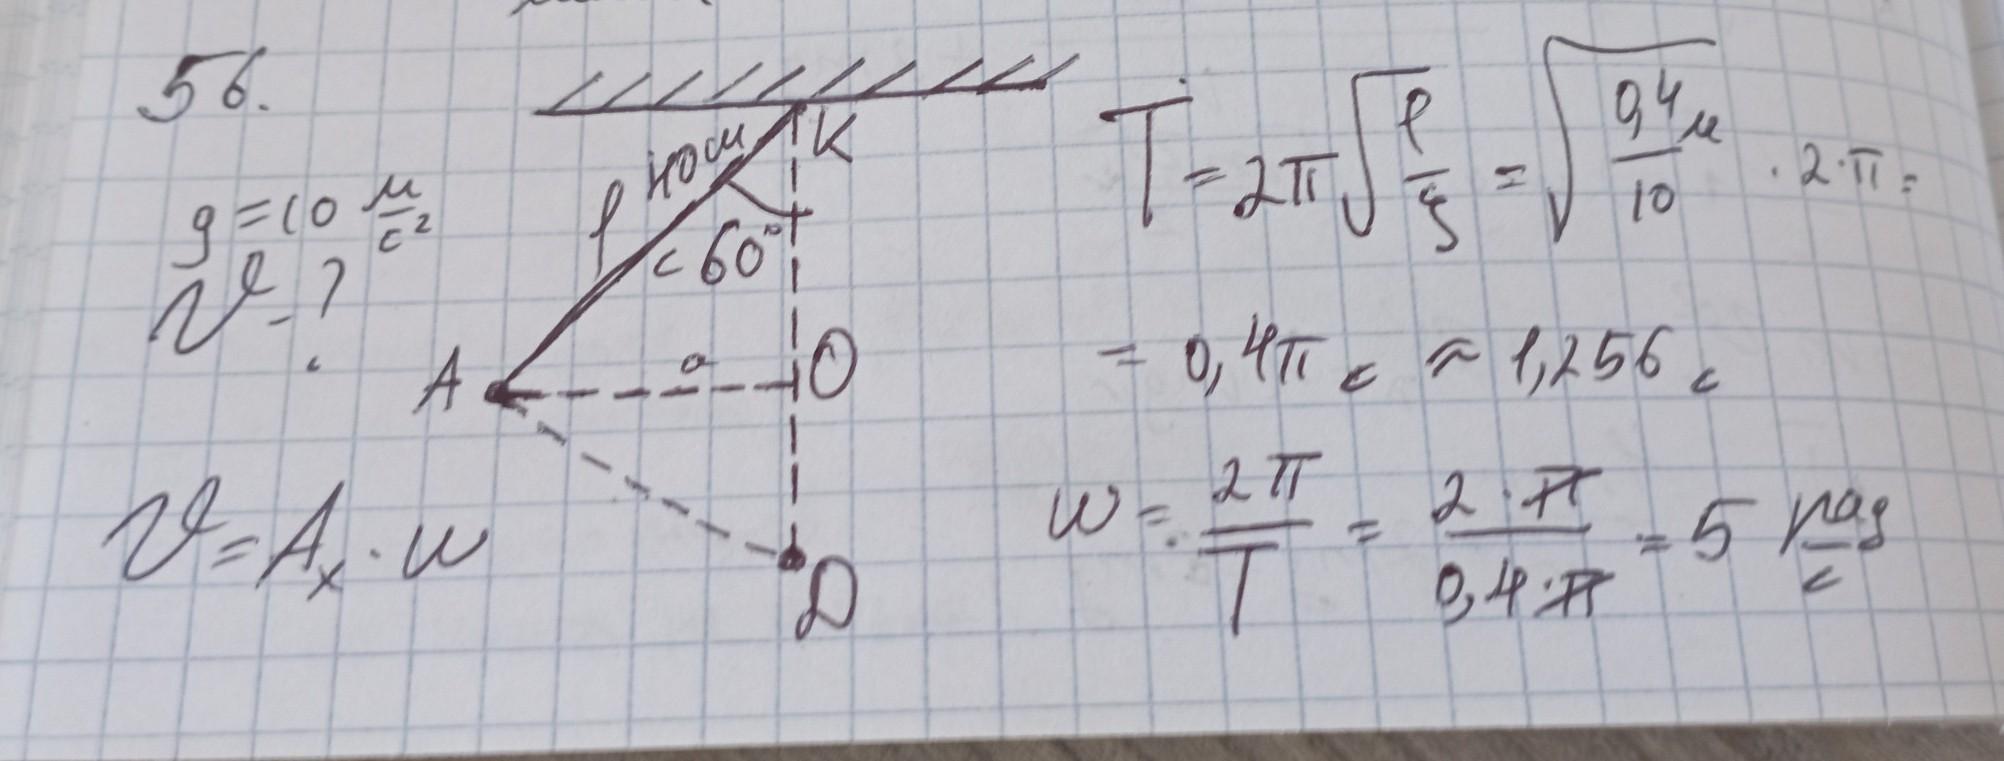 56.
g = 10 м/с²
V - ?
K
l 40 см
< 60°
A
a
O
D
V = Aₓ · w
T = 2π √(l/g) = √(0,4 м/10) · 2 · π =
= 0,4π с ≈ 1,256 с
w = 2π/T = 2 · π/0,4 · π = 5 рад/с